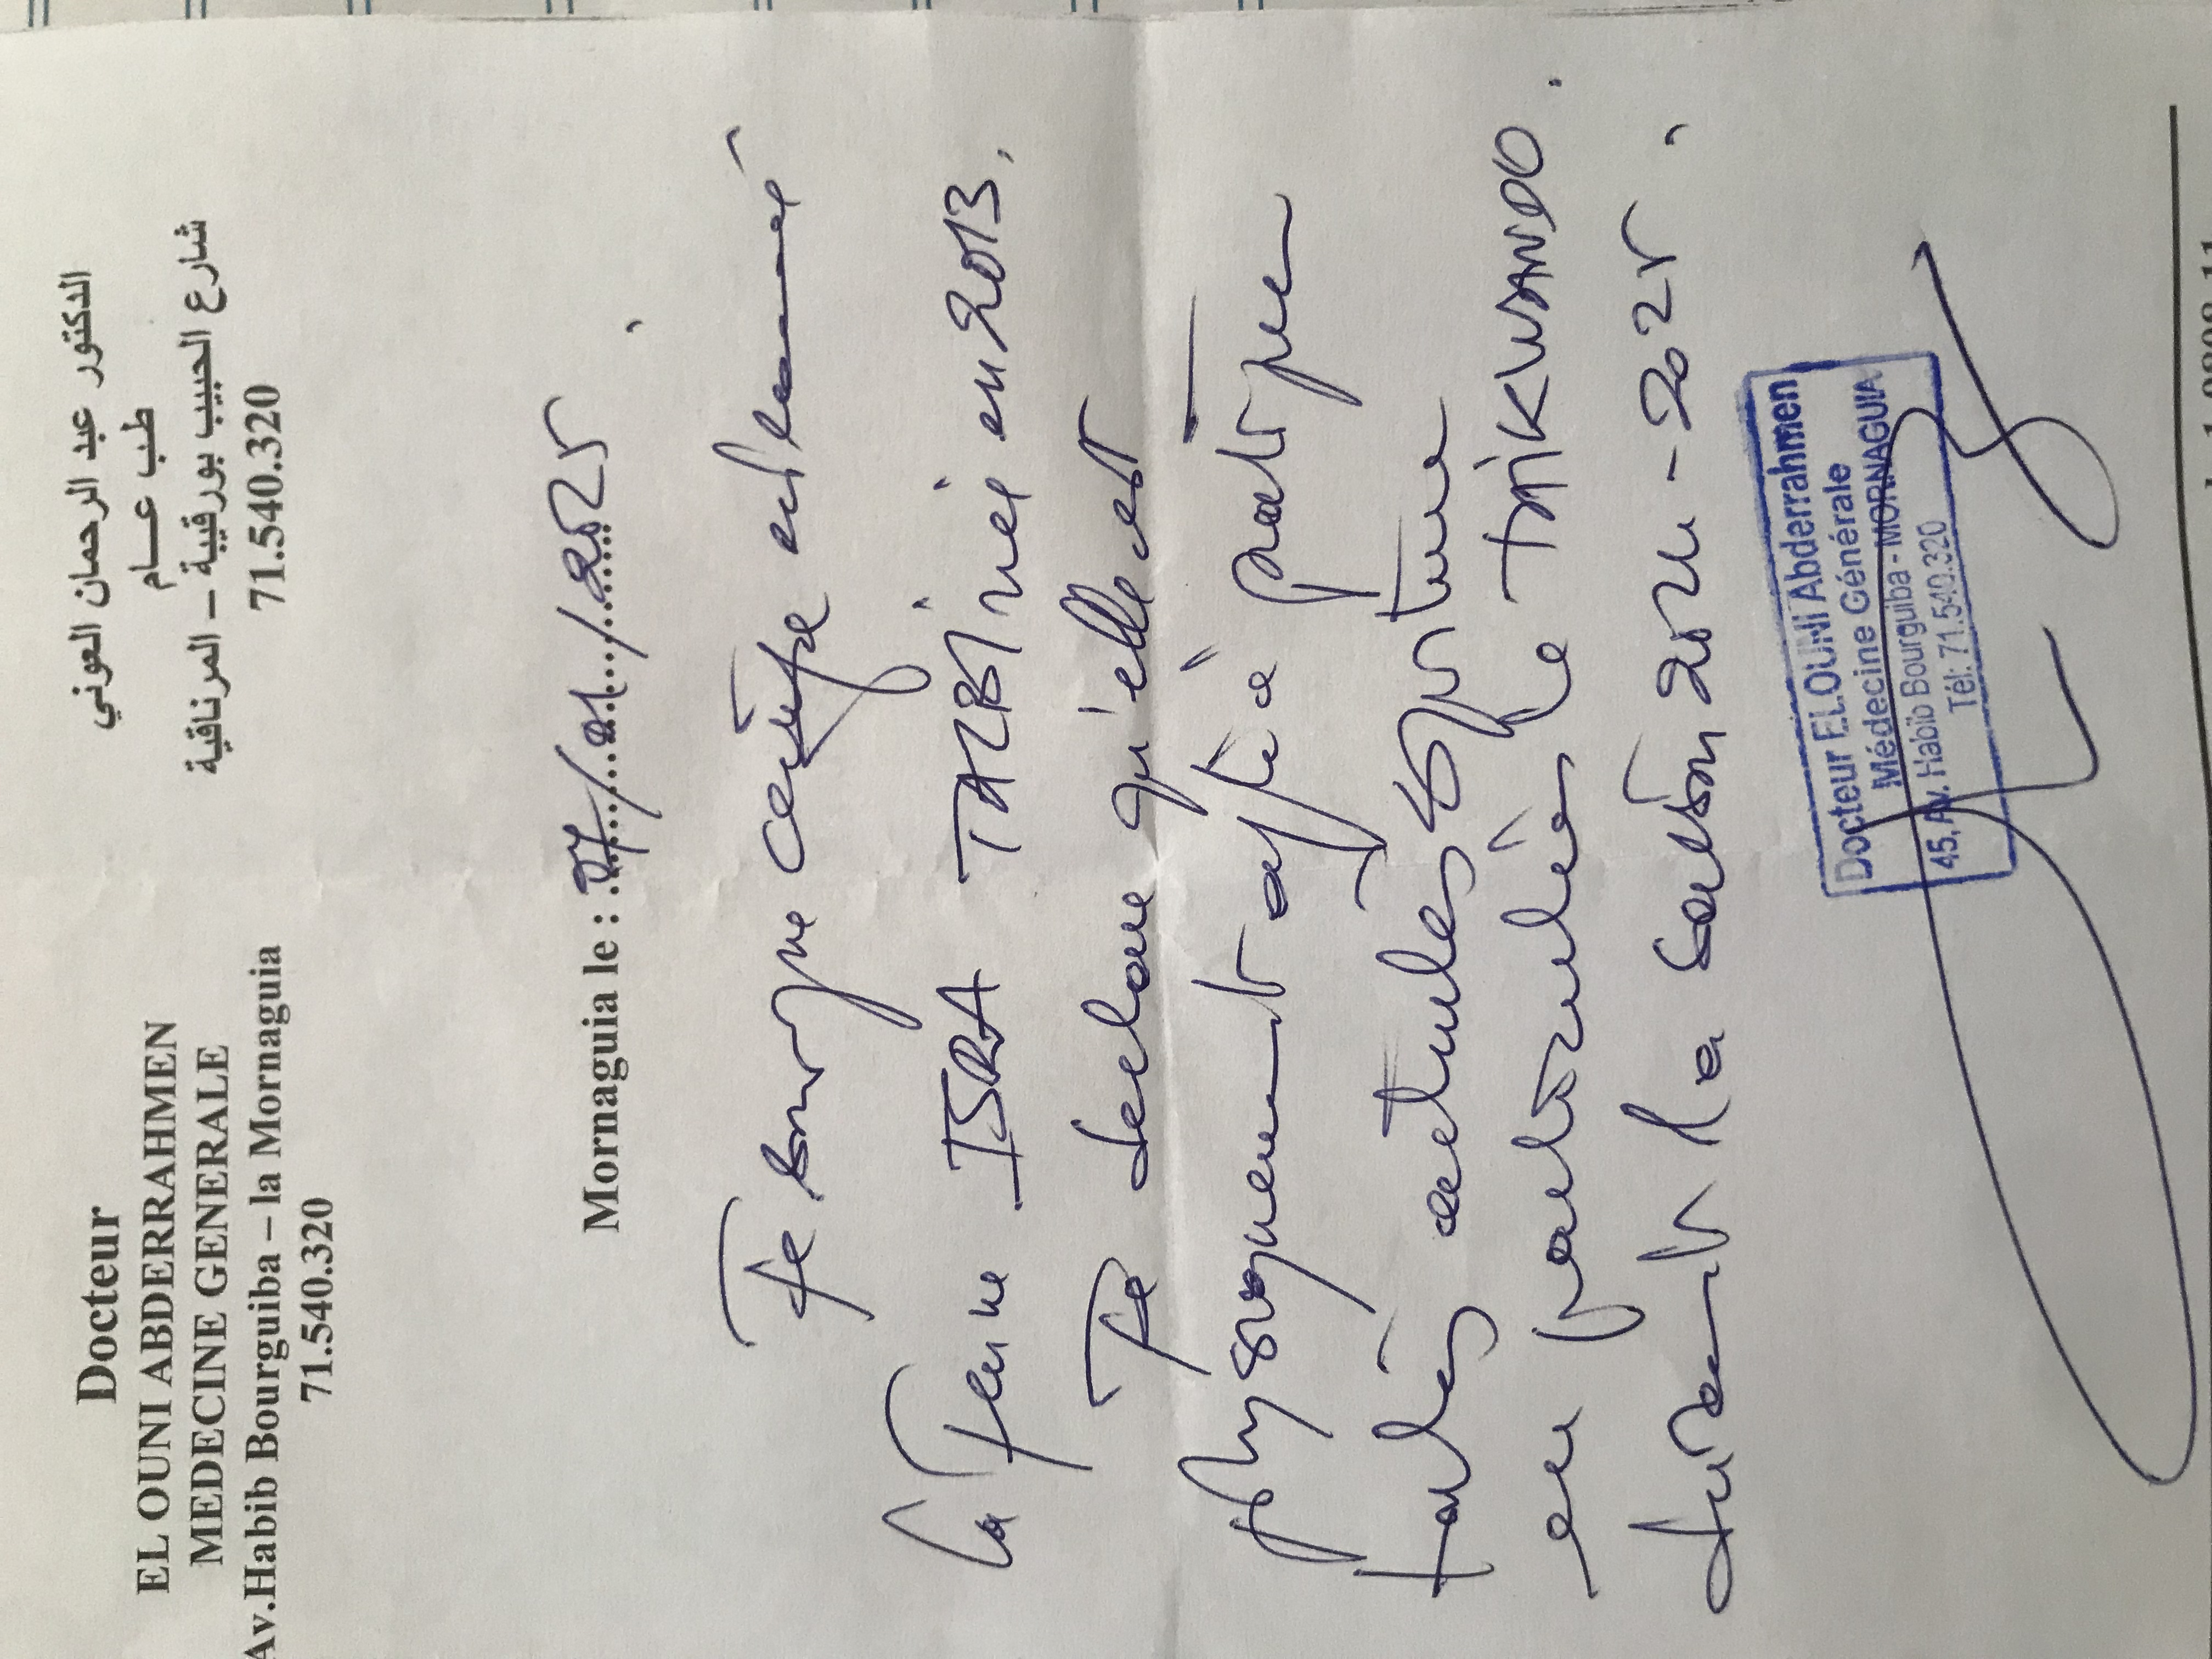 Docteur
EL OUNI ABDERRAHMEN
MEDECINE GENERALE
Av.Habib Bourguiba – la Mornaguia
71.540.320
الدكتور عبد الرحمان العوني
طب عــــام
شارع الحبيب بورقيبة – المرناقية
71.540.320
Mornaguia le : 27/01/2025
Je soussigné certifie examiné
la jeune ISRA TALBI née en 2013.
Je déclare qu'elle est
physiquement apte à pratiquer
toutes activités sportives
en particulier le TAIKWANDO.
durant la saison 2024-2025.
Docteur ELOUNI Abderrahmen
Médecine Générale
45, Av. Habib Bourguiba - MORNAGUIA
Tél: 71.540.320